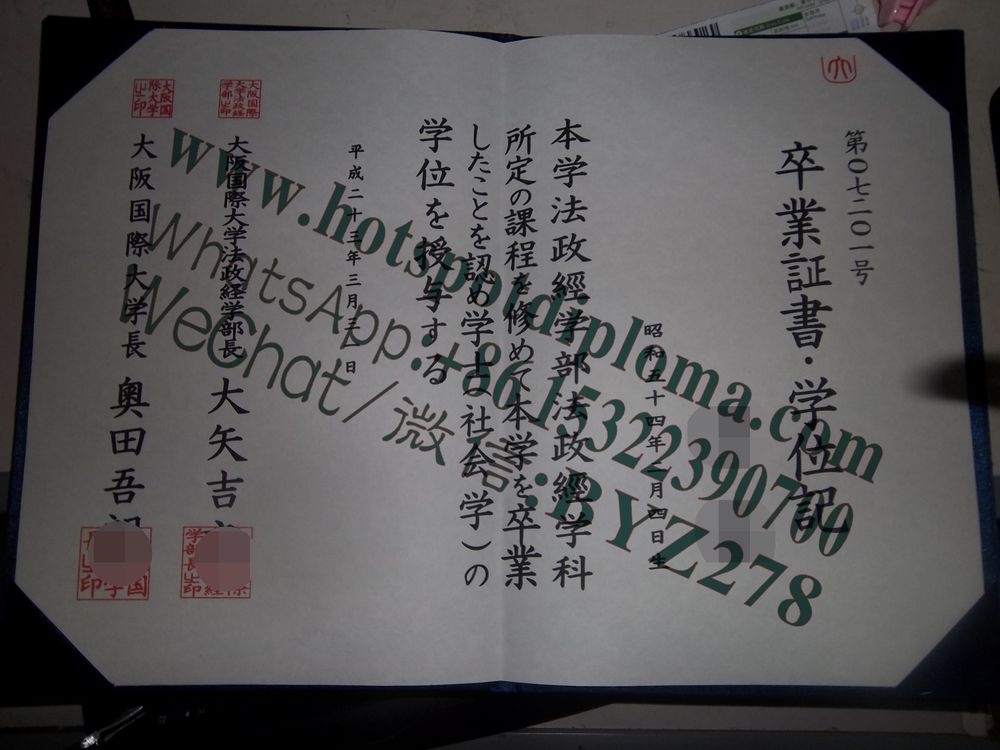 第〇七二〇一号
卒業証書・学位記
昭和五十四年二月四日生
本学法政經学部法政經学科
所定の課程を修めて本学を卒業
したことを認め学士（社会学）の
学位を授与する
平成二十三年三月三一日
大阪国際大学法政経学部長 大矢吉
大阪国際大学長 奥田吾
大阪国際大学法政経学部之印
大阪国際大学之印
www.hotspotdiploma.com
WhatsApp:+8615322390700
WeChat/微信:BYZ278